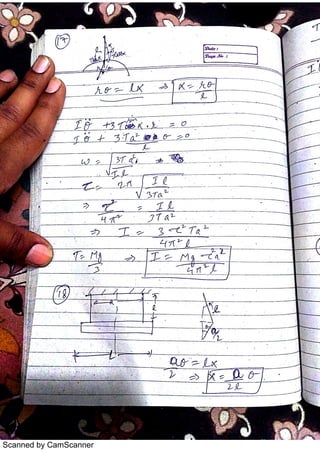 17
Date :
Page No. :
rθ = lx ⇒ x = rθ/l
Iθ̈ + 3T x . r = 0
Iθ̈ + 3Ta² θ/l = 0
ω = √(3Ta²/Il)
τ = 2π √(Il/3Ta²)
⇒ τ²/4π² = Il/3Ta²
⇒ I = 3τ²Ta²/4π²l
T = Mg/3 ⇒ I = Mg τ²a²/4π²l
18
a
l
L
l
a/2
aθ/2 = lx
⇒ x = a/2l θ
Scanned by CamScanner